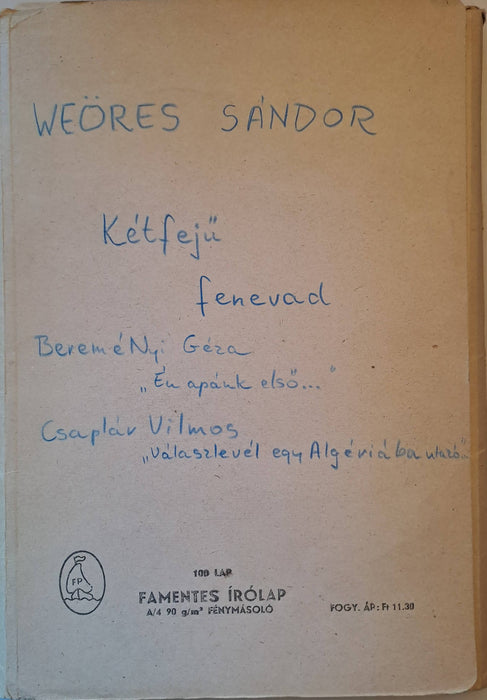 WEÖRES SÁNDOR
Kétfejű
fenevad
BereméNyi Géza
„Én apánk első..."
Csaplár Vilmos
„Válaszlevél egy Algériába utazó"
FP
100 LAP
FAMENTES ÍRÓLAP
A/4 90 g/m² FÉNYMÁSOLÓ
FOGY. ÁP: Ft 11.30